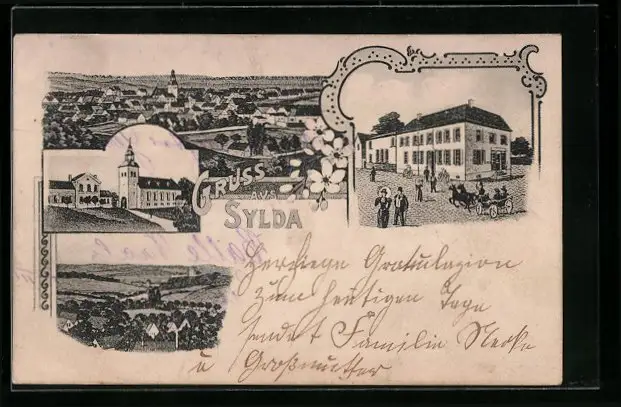 GRUSS
AUS
SYLDA
Herliege Gratulazion
zum heutigen Tage
sendet Familie
u Großmutter